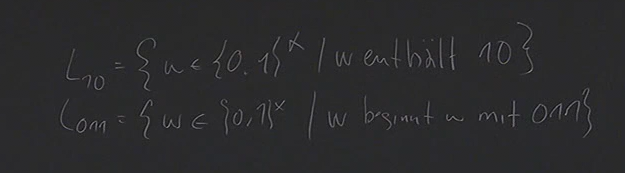 L₁₀ = { w ∈ {0,1}* / w enthält 10 }
L₀₁₁ = { w ∈ {0,1}* / w beginnt w mit 011 }